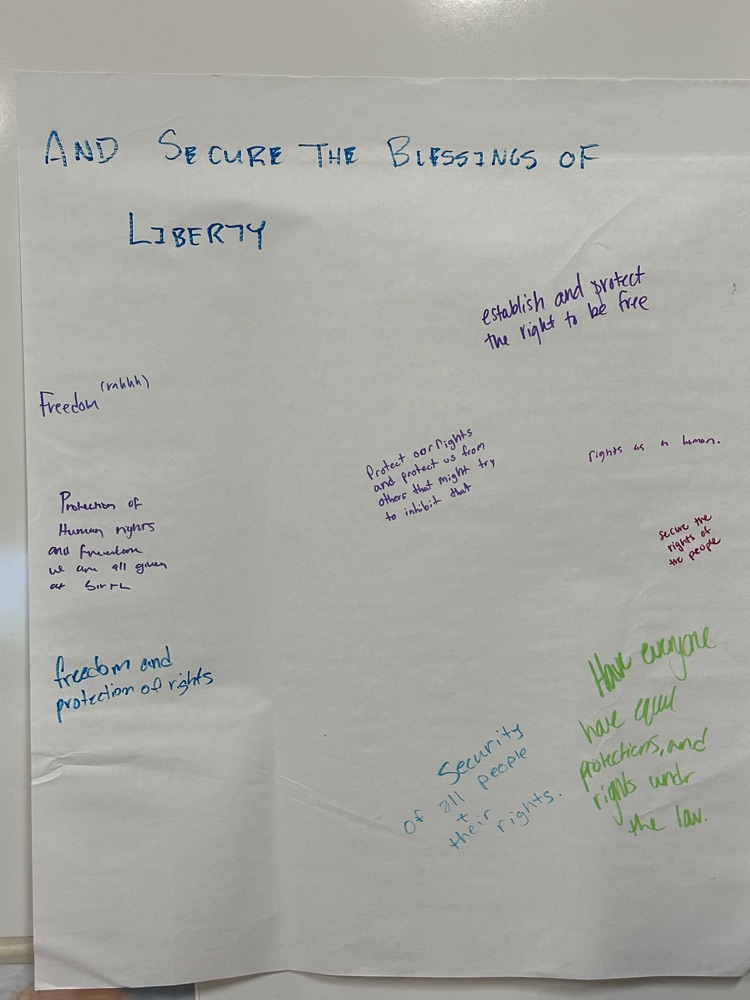 AND SECURE THE BLESSINGS OF
LIBERTY
establish and protect
the right to be free
Freedom (rahhh)
Protect our rights
and protect us from
others that might try
to inhibit that
rights as a human.
Protection of
Human rights
and freedom
we are all given
at birth
secure the
rights of
the people
freedom and
protection of rights
Have everyone
have equal
protections, and
rights under
the law.
Security
of all people
+
their rights.